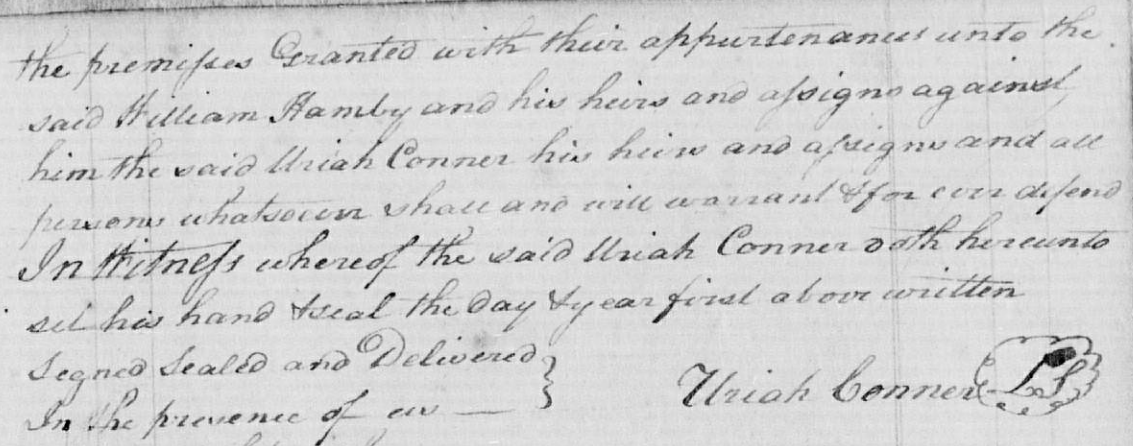 the premisses Granted with their appurtenances unto the
said William Hamby and his heirs and assigns against
him the said Uriah Conner his heirs and assigns and all
persons whatsoever shall and will warrant & for ever defend
In Witness whereof the said Uriah Conner doth hereunto
set his hand & seal the day & year first above written
Segned Sealed and Delivered
In the presence of us —
Uriah Conner LS